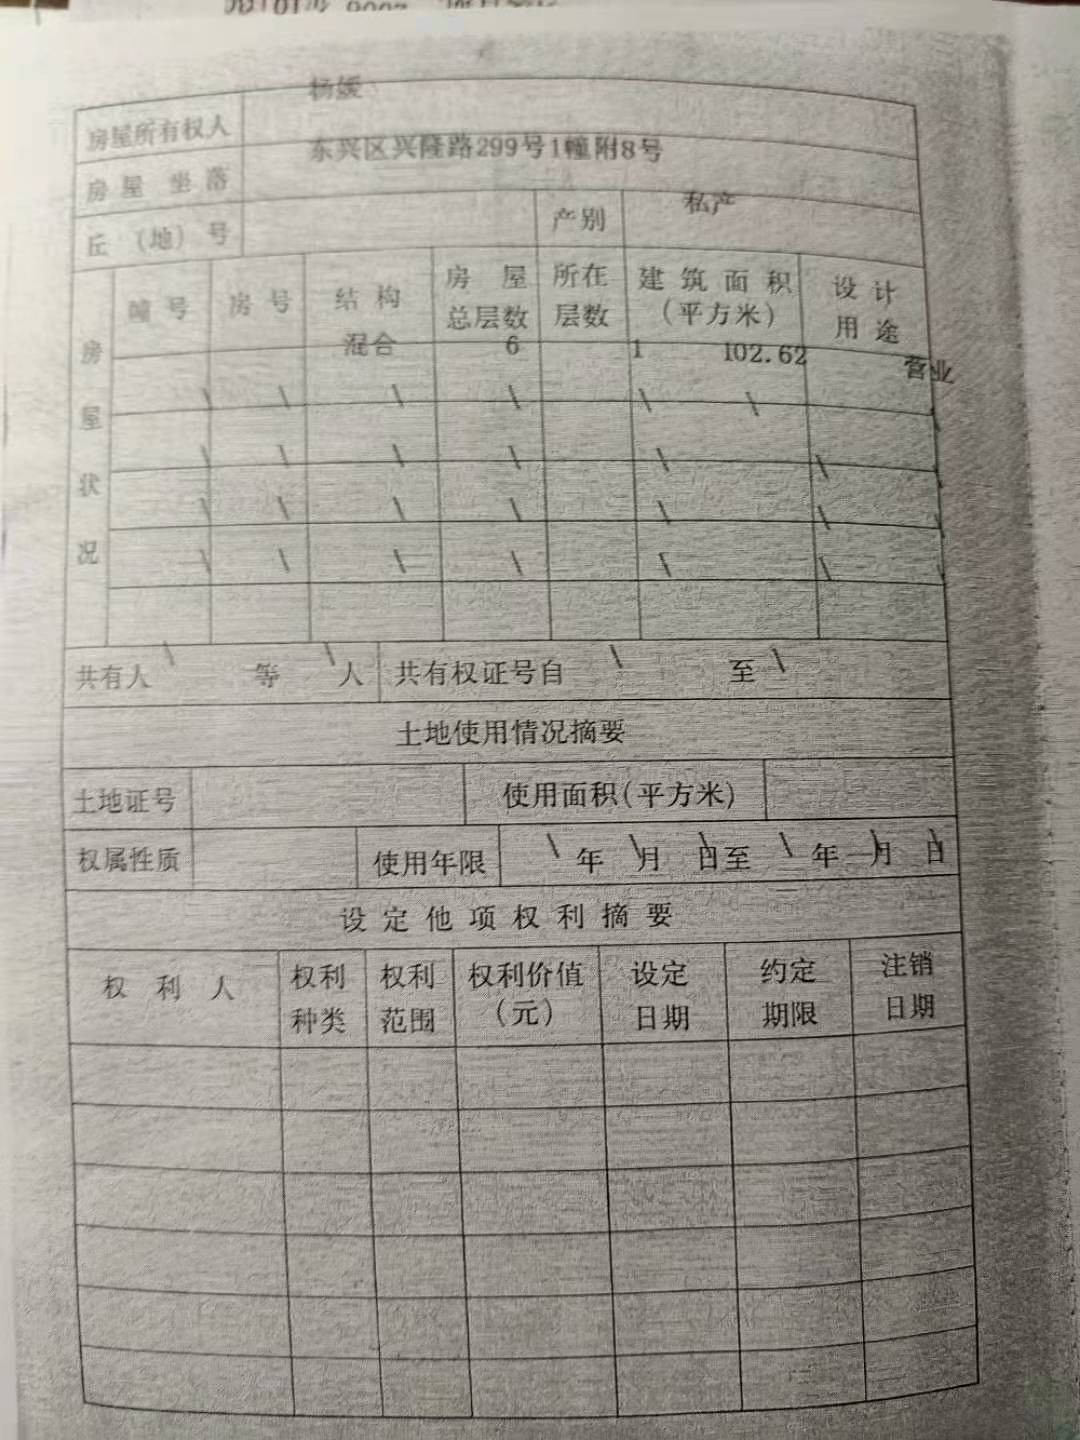 杨媛
房屋所有权人
东兴区兴隆路299号1幢附8号
房屋坐落
私产
丘（地）号 产别
幢号 房号 结构 房屋总层数 所在层数 建筑面积（平方米） 设计用途
房屋状况
混合 6 1 102.62 营业
\ \ \ \ \ \
\ \ \ \ \ \
\ \ \ \ \ \
\ \ \ \ \ \
共有人 \ 等 \ 人 共有权证号自 \ 至 \
土地使用情况摘要
土地证号 使用面积(平方米)
权属性质 使用年限 \ 年 \ 月 \ 日至 \ 年 \ 月 \ 日
设定他项权利摘要
权利人 权利种类 权利范围 权利价值（元） 设定日期 约定期限 注销日期